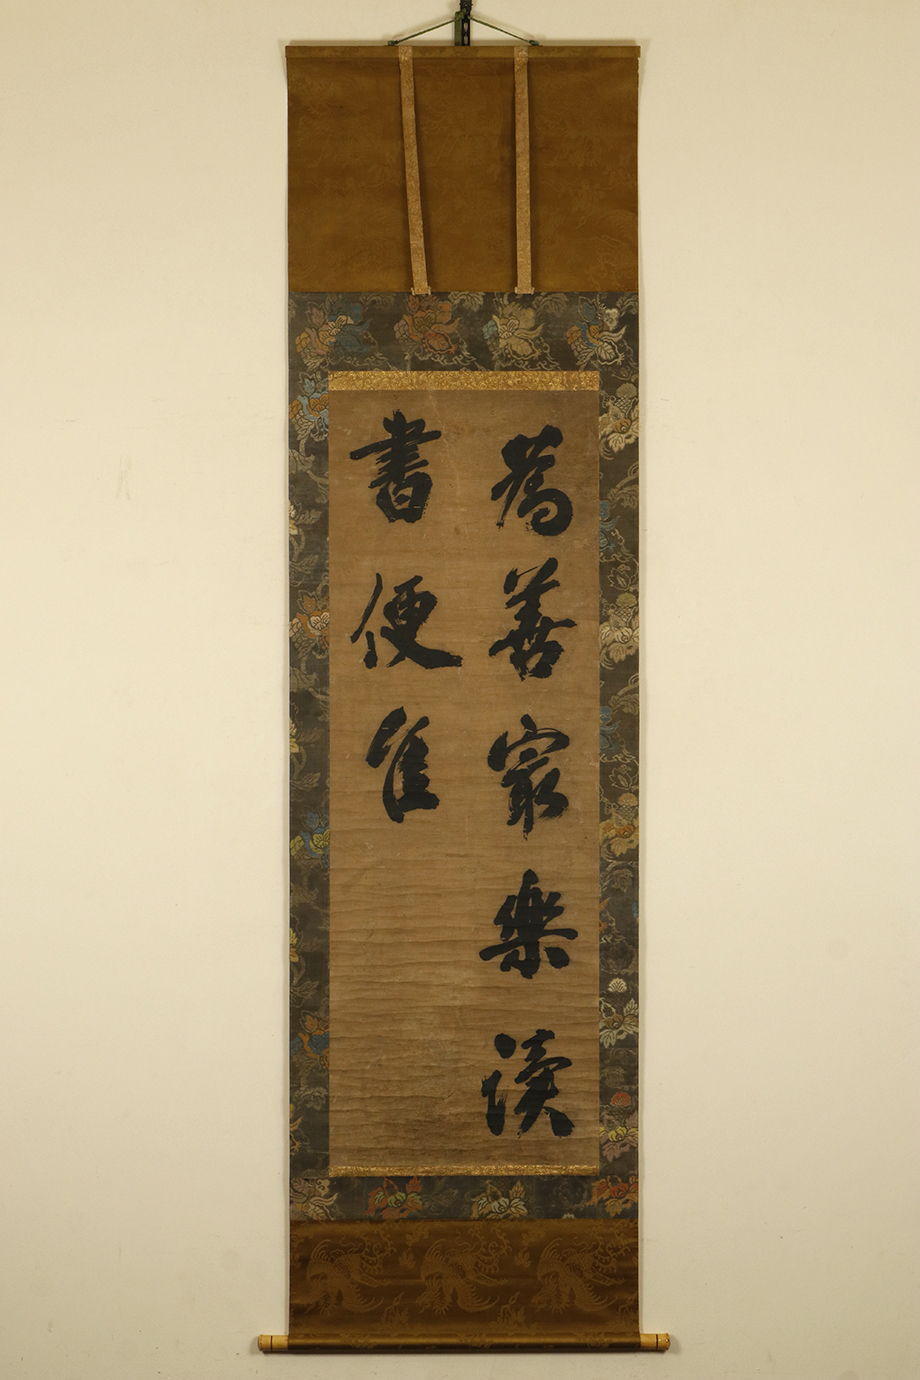 為善最樂讀
書便佳